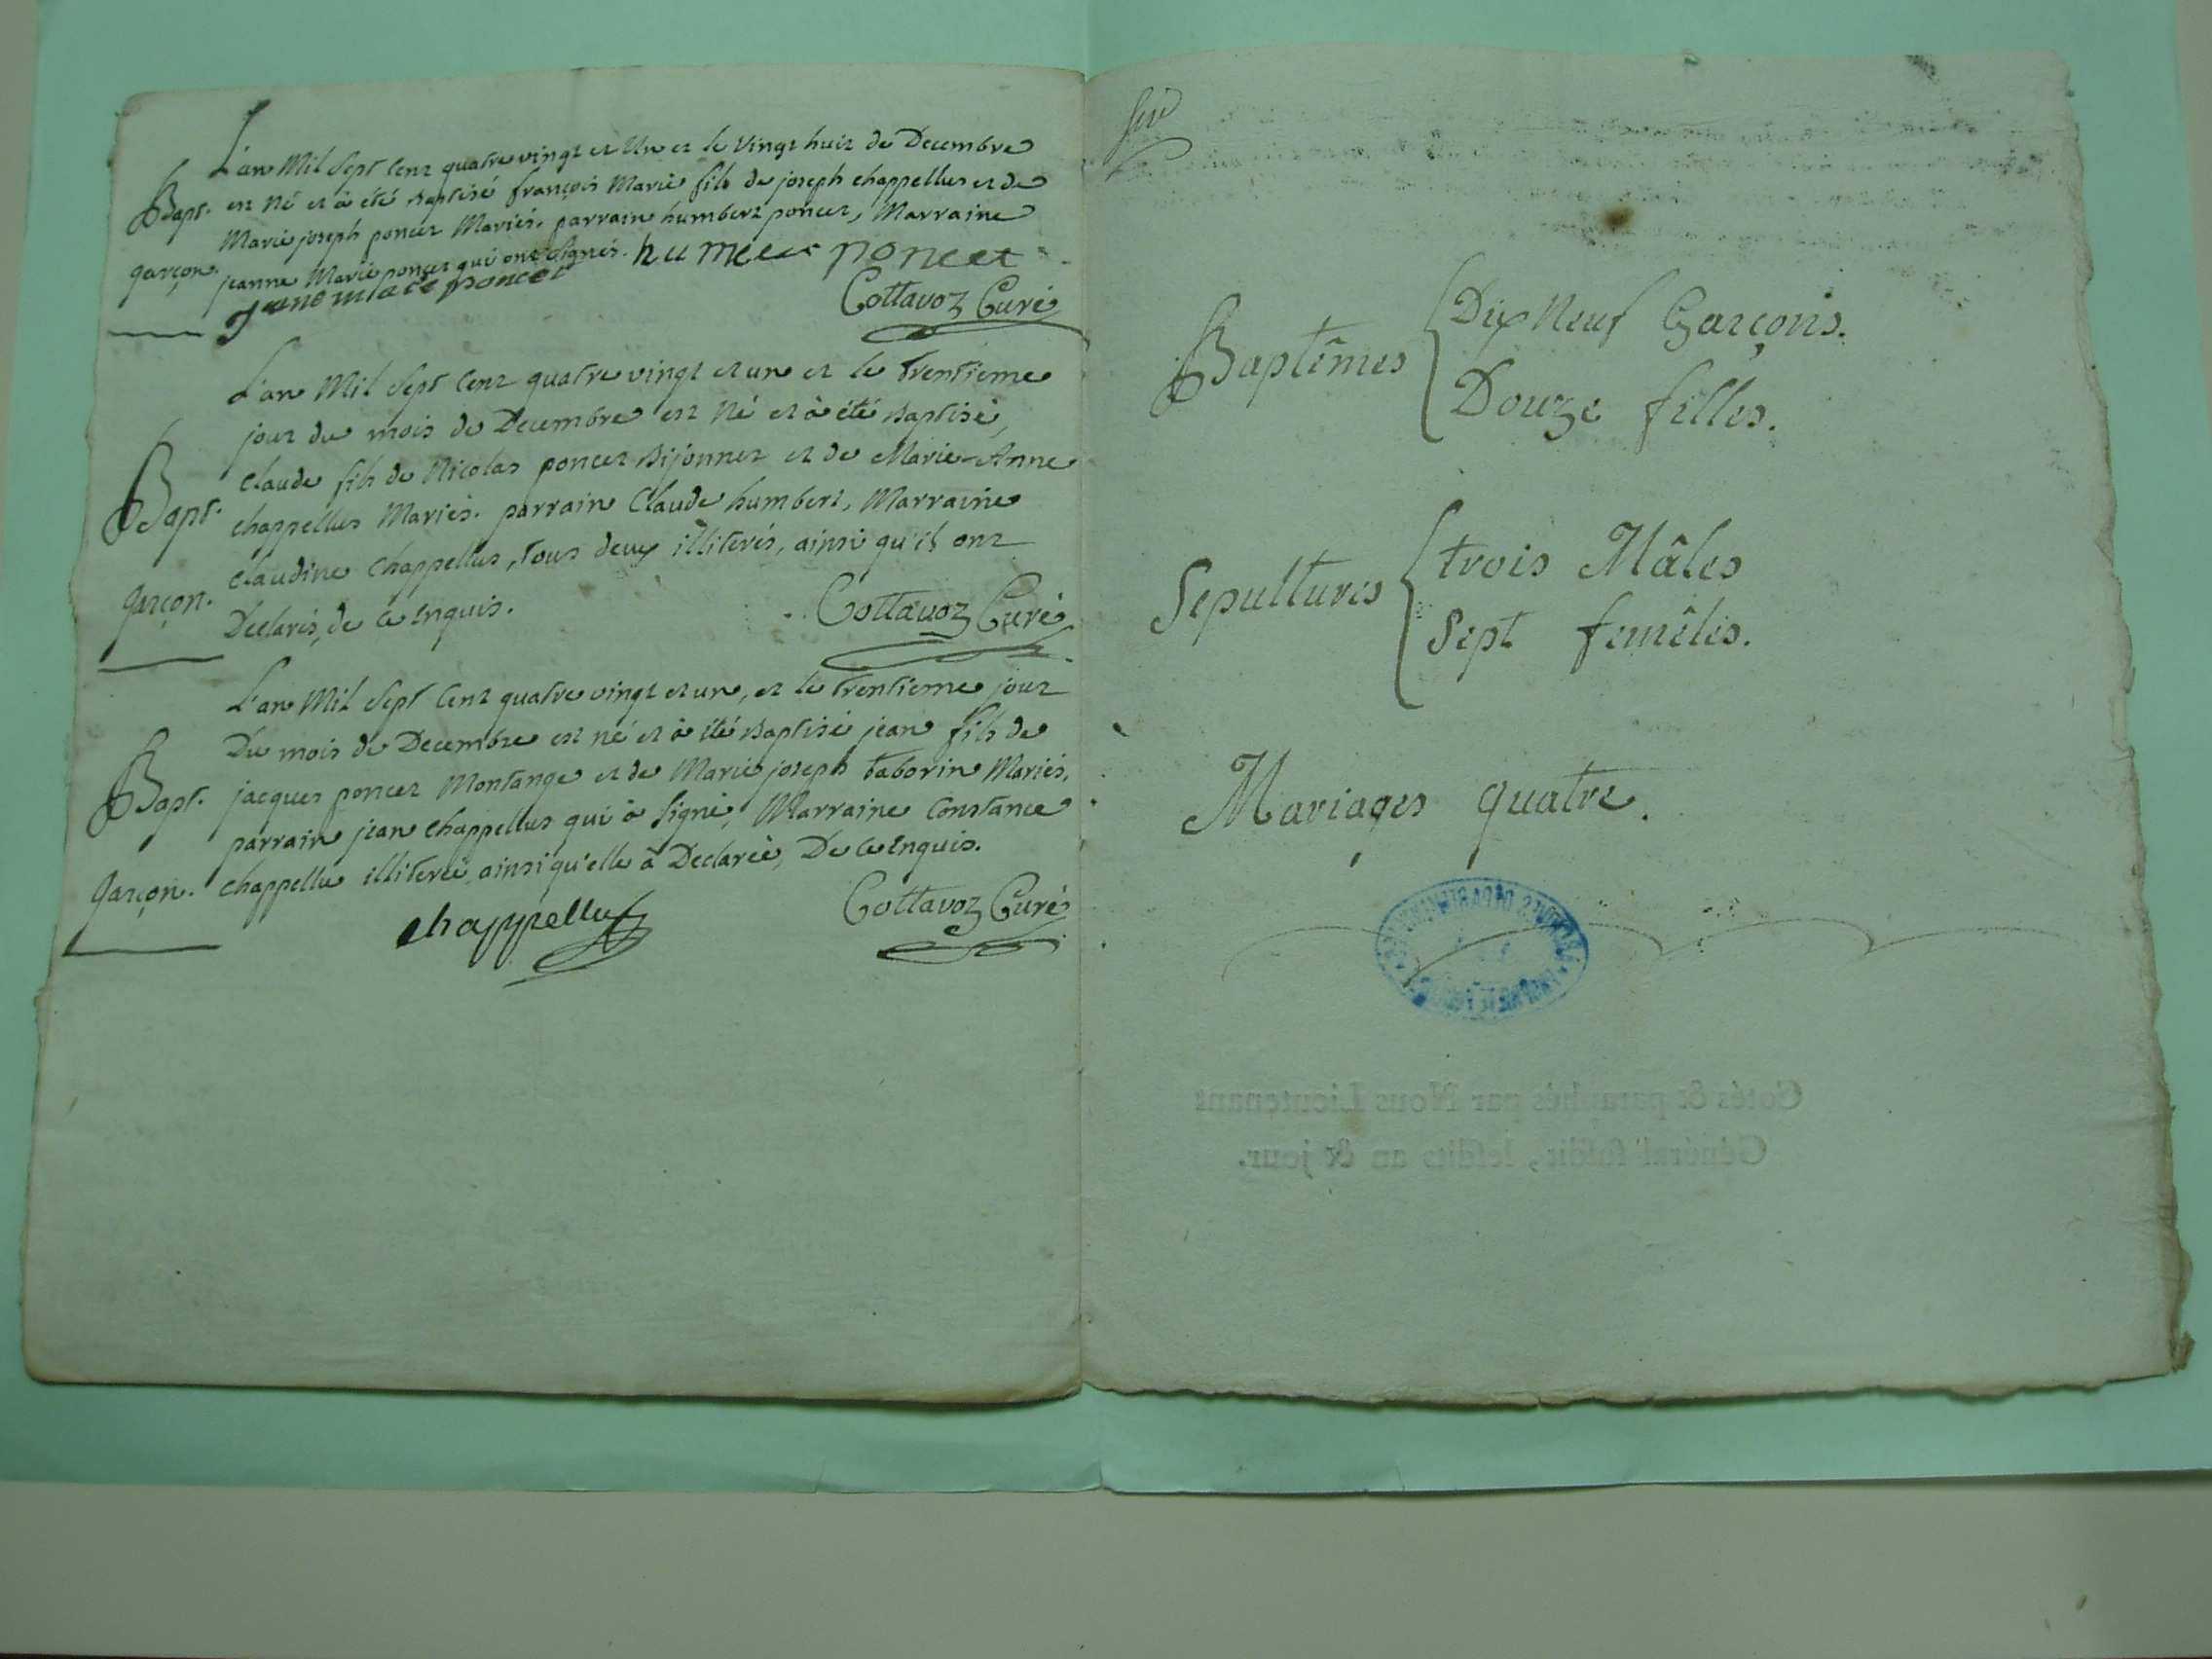 L'an Mil Sept Cent quatre vingt et Un et le Vingt huit de Decembre
Bapt. est Né et à été Baptisé françois Marie fils de joseph chappellus et de
Marie joseph poncet Mariés. parrain humbert poncet, Marraine
garçon. jeanne Marie poncet qui ont Signés. humbert poncet
jane marie poncet
Cottavoz Curé
L'an Mil Sept Cent quatre vingt et un et le trentieme
jour du mois de Decembre est Né et à été Baptisé,
Claude fils de Nicolas poncet Bijonnet et de Marie-Anne
Bapt. chappellus Mariés. parrain Claude humbert, Marraine
Claudine Chappellus, tous deux illiterés, ainsi qu'ils ont
garçon. Declarés, de ce Enquis.
Cottavoz Curé
L'an Mil Sept Cent quatre vingt et un, et le trentieme jour
Du mois de Decembre est né et à été Baptisé jean fils de
Bapt. jacques poncet Montange et de Marie joseph taborin Mariés.
parrain jean chappellus qui à Signé, Marraine Constance
garçon. chappellus illiterée ainsi qu'elle à Declarée, De ce Enquis.
chappellus
Cottavoz Curé
Baptêmes
Dix Neuf Garçons.
Douze filles.
Sepultures
trois Mâles
Sept femêles.
Mariages quatre.
Cotés & paraphés par Nous Lieutenant
Général susdit, lesdits an & jour.